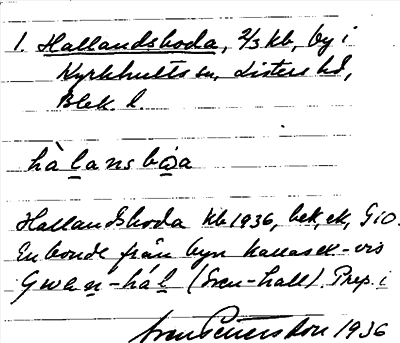 1. Hallandsboda, 2/3 kb, by i
Kyrkhults sn, Listers hd,
Blek. l.
hàlansbωa
Hallandsboda kb 1936, bek, ek, GiO.
En bonde från byn kallas ek-vis
Gwen-hál (Sven-hall). Prep. i
1936